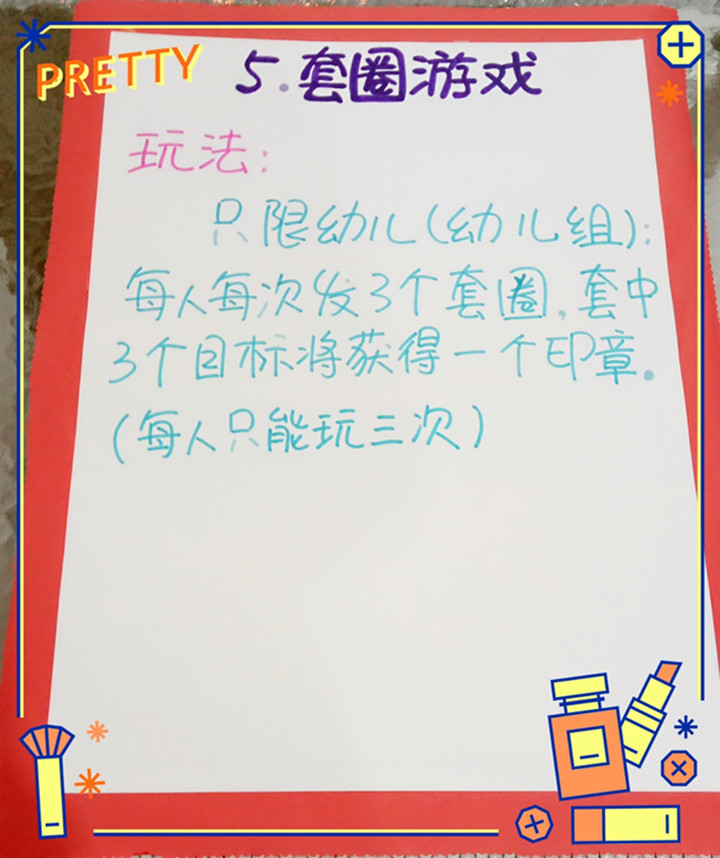 PRETTY
5.套圈游戏
玩法:
只限幼儿(幼儿组):
每人每次发3个套圈,套中
3个目标将获得一个印章。
(每人只能玩三次)